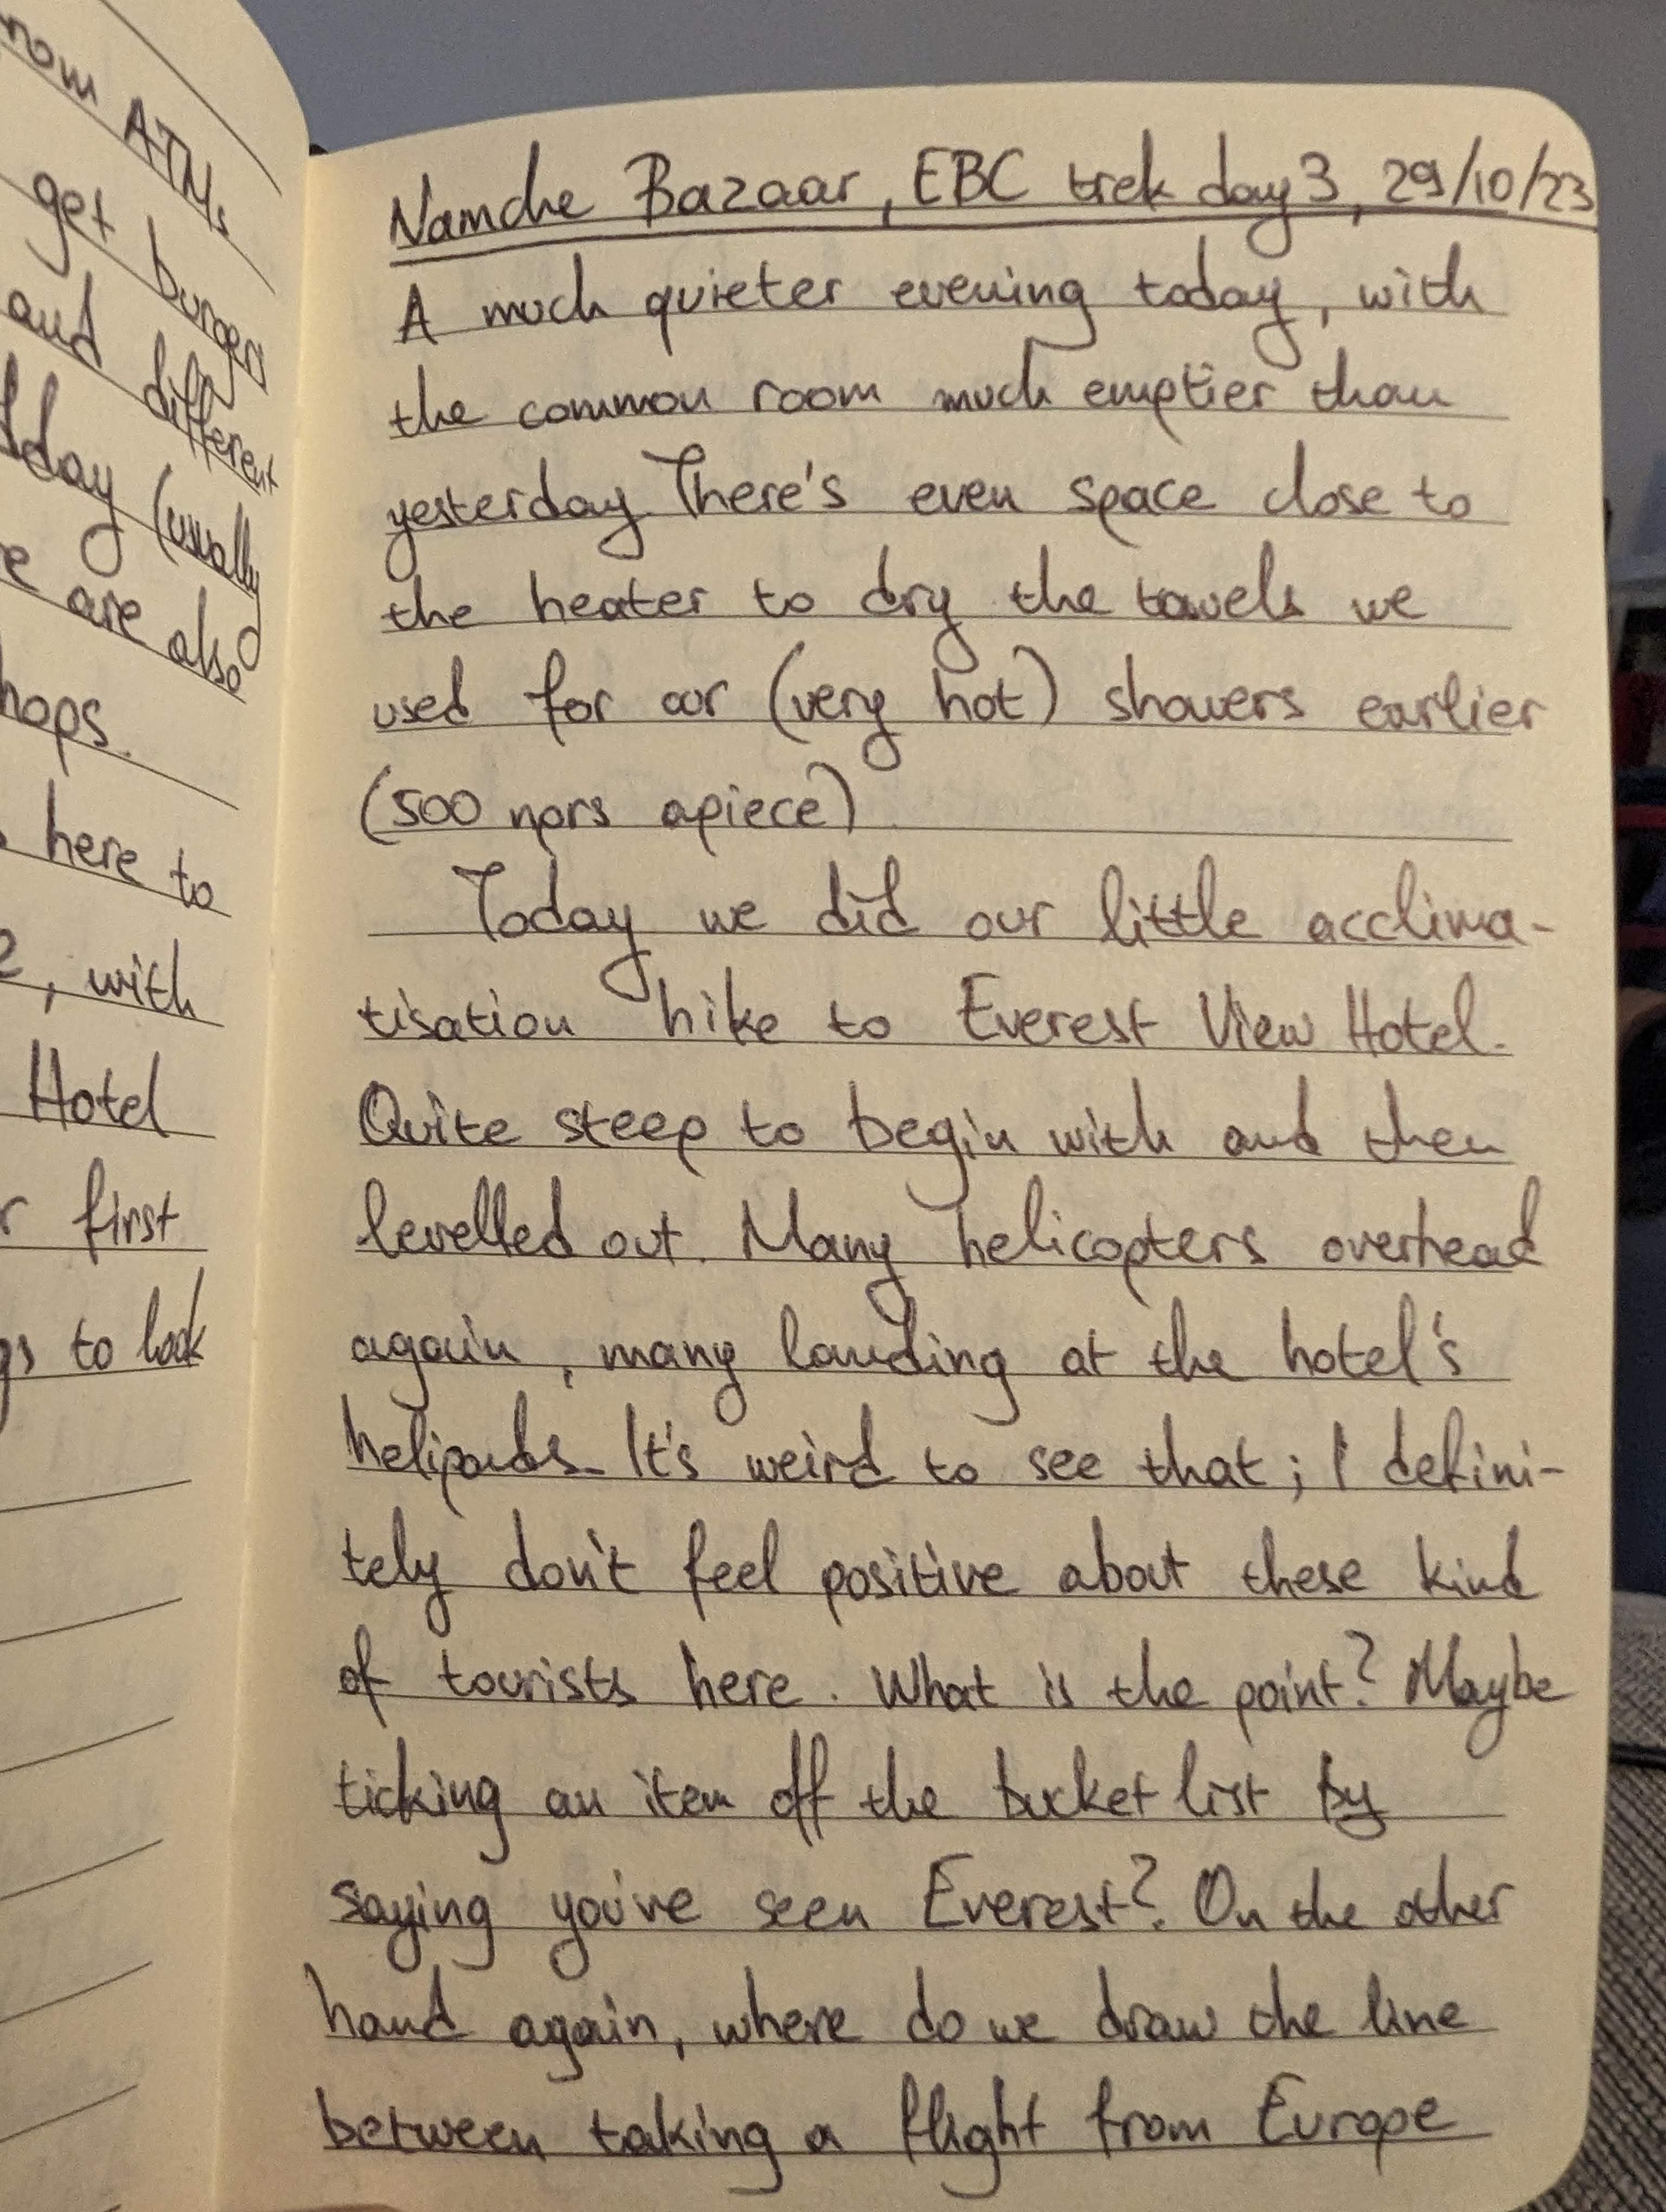 from ATMs
get burgers
and different
day (usually
are also
hops.
here to
, with
Hotel
first
to look
Namche Bazaar, EBC trek day 3, 29/10/23
A much quieter evening today, with
the common room much emptier than
yesterday. There's even space close to
the heater to dry the towels we
used for our (very hot) showers earlier
(500 nprs apiece).
Today we did our little acclima-
tisation hike to Everest View Hotel.
Quite steep to begin with and then
levelled out. Many helicopters overhead
again, many landing at the hotel's
helipads. It's weird to see that; I defini-
tely don't feel positive about these kind
of tourists here. What is the point? Maybe
ticking an item off the bucket list by
saying you've seen Everest? On the other
hand again, where do we draw the line
between taking a flight from Europe